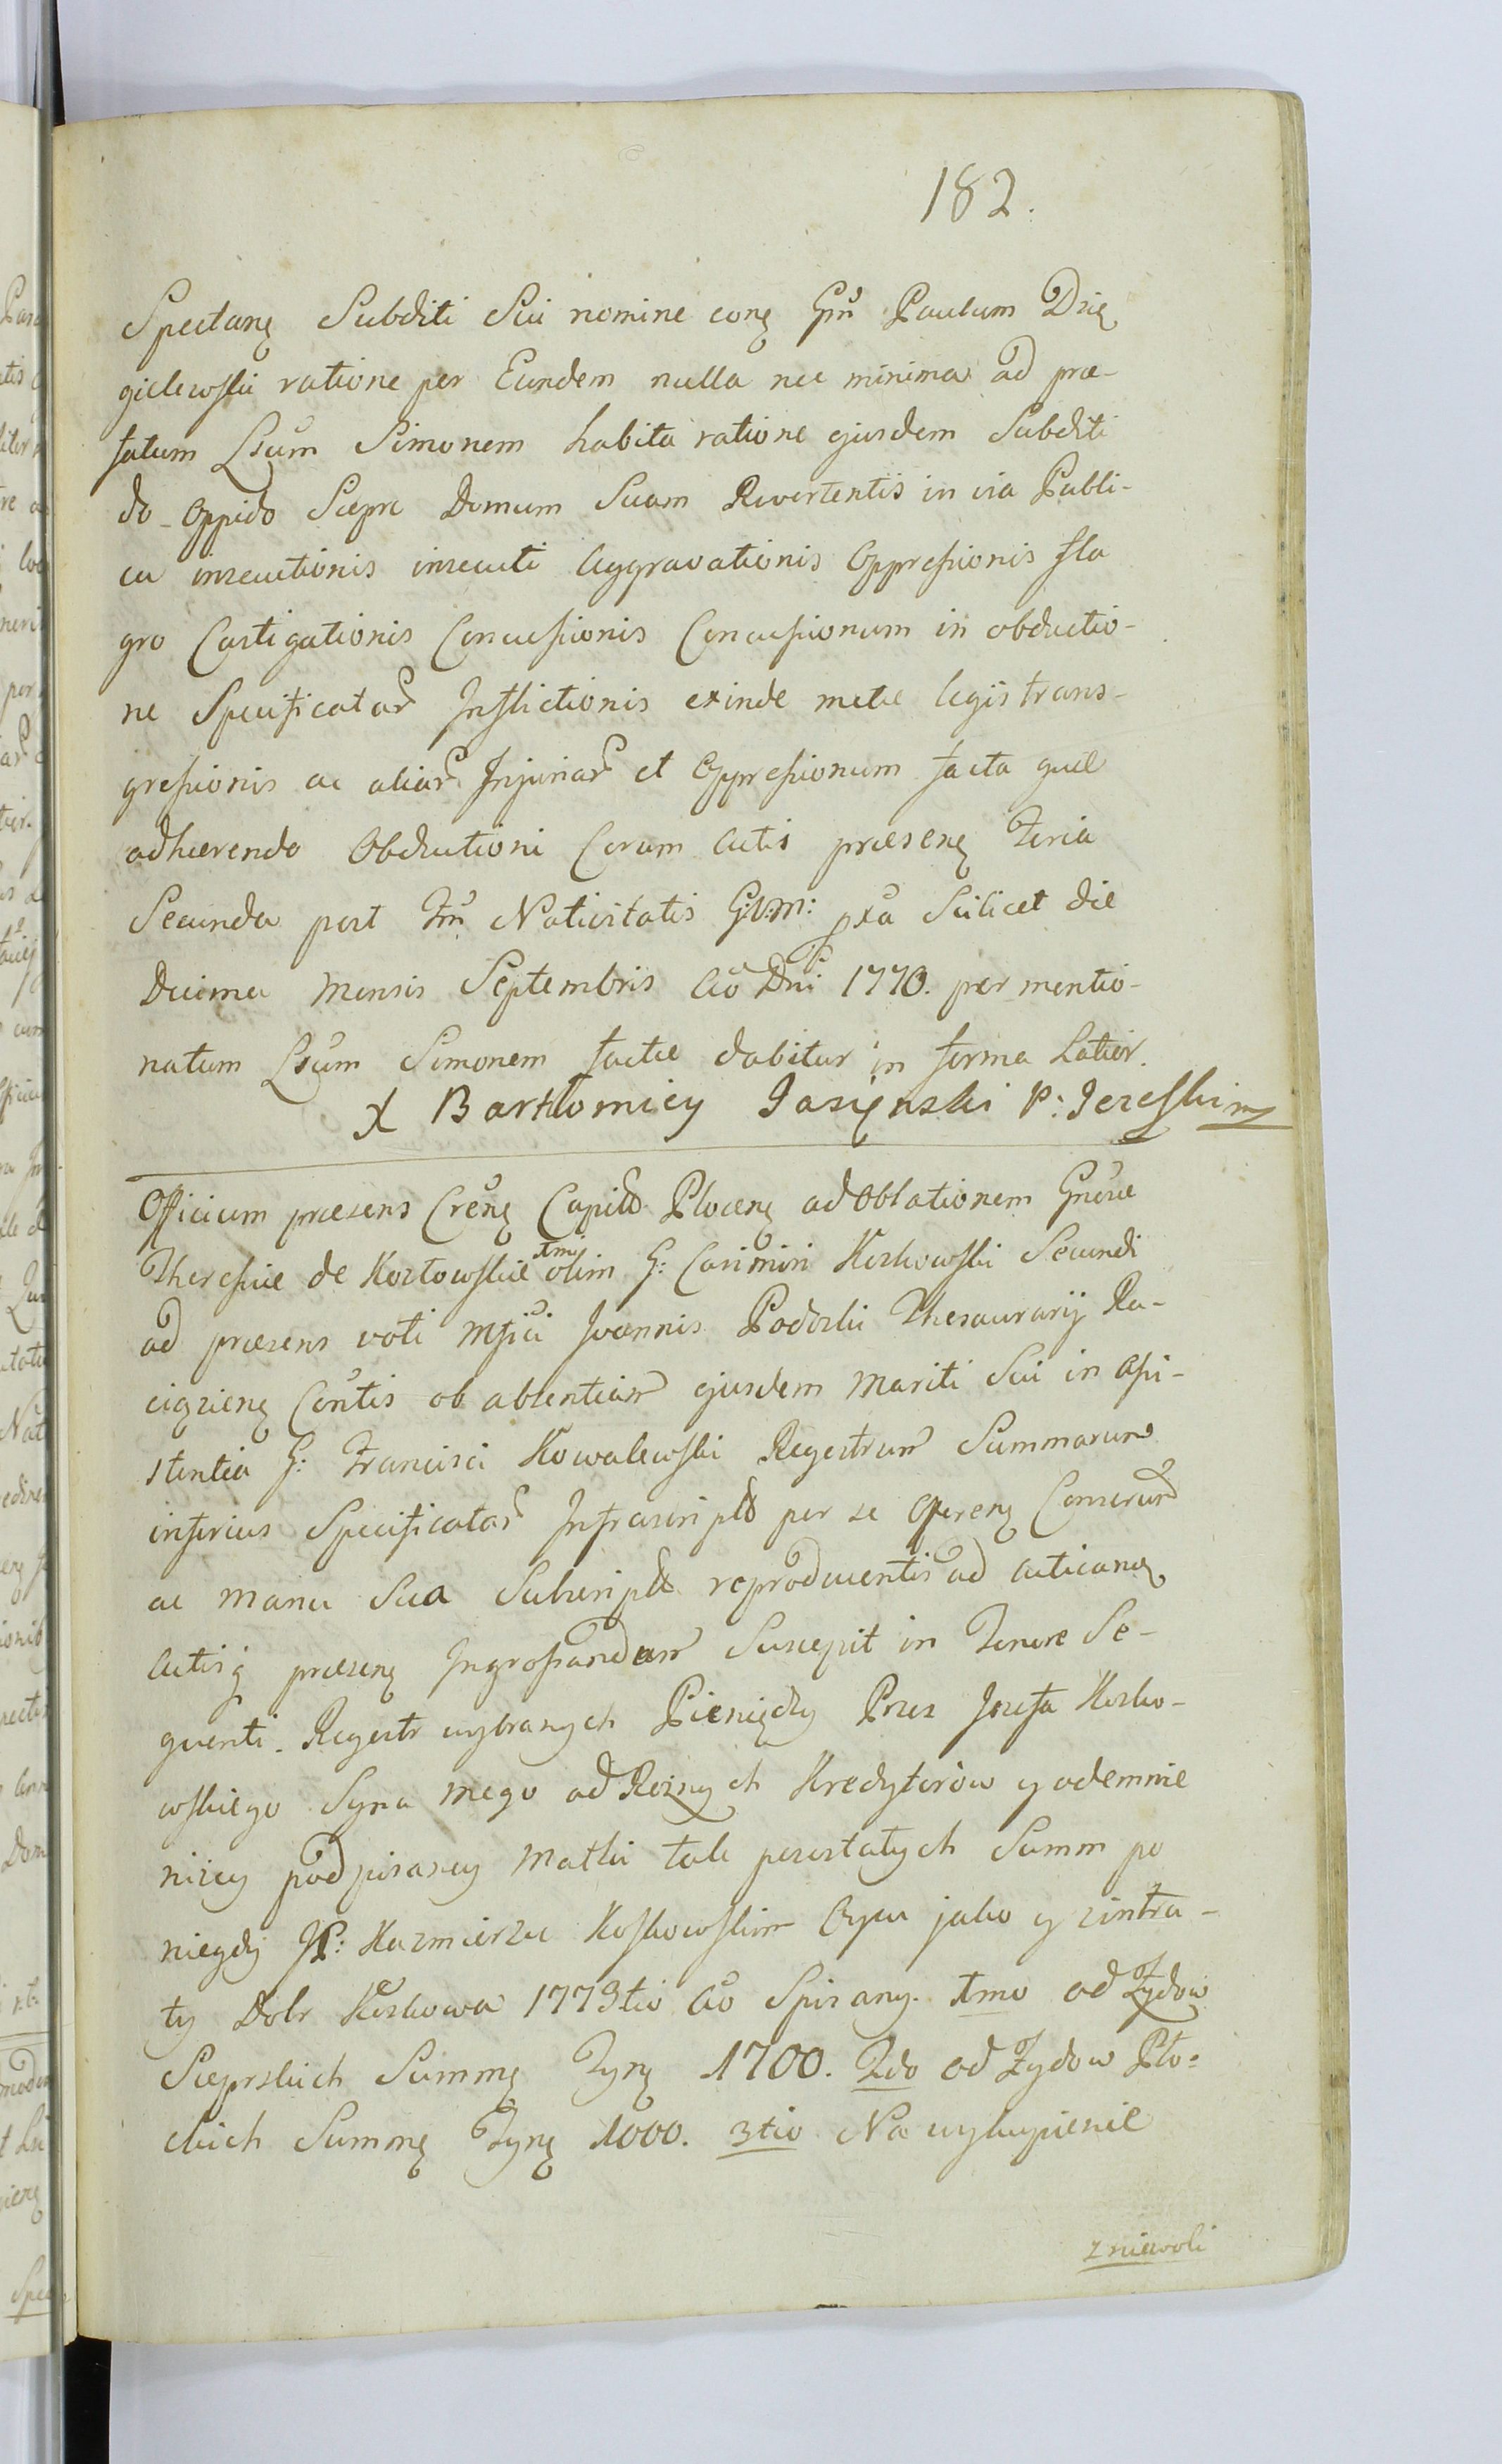 182.
Spectanę Subditi Sui nomine conę Gm̃ Paulum Dzię
gielewski ratione per Eundem nulla nec minima ad præ-
fatum Lsũm Simonem habita ratione ejusdem Subditi
do Oppido Siepre Domum Suam Revertentis in via Publi-
ca insecutionis insecuti Aggravationis Oppreſsionis fla
gro Castigationis Concuſsionis Concuſsionum in obductio-
ne Specificatar Inflictionis exinde metæ legis trans-
greſsionis ac aliar Injuriar et Oppreſsionum facta quæ
adhærendo Obductioni Coram Actis præsenę Feria
Secunda post Fm̃ Nativitatis G:V:M: pxa Scilicet die
Decima Mensis Septembris Aõ Dnĩ 1770. per mentio-
natum Lsũm Simonem factæ dabitur in forma Latior.
X Bartłomiey Jasięnski P: Jezeski mp
Officium præsens Crẽnę Capitł Plocenę ad Oblationem Gnẽræ
Theresiæ de Kozłowskie 1mi olim G: Casimiri Koskowski Secundi
ad præsens voti Mfici Joannis Podoski Thesaurarij Ra-
ciązienę Contis ob absentiam ejusdem Mariti Sui in Aſsi-
stentia G: Francisci Kowalewski Regestrum Summarum
inferius Specificatar Infrascript per se Offerenę Conserund
ac manu Sua Subscript reproducentis ad Acticanę
Actisq̃ præsenę Ingroſsandum Suscepit in Tenore Se-
quenti. Regestr wybranych Pieniędzy Przez Jozefa Kosko-
wskiego Syna mego od Roznych Kredytorów y odemnie
nizey podpisaney Matki tak pozostałych Summ po
niegdy JP: Kazmierzu Koskowskim Oycu jako y zintra-
ty Dobr Koskowa 1773tio Aõ Spisany. 1mo od Zydow
Sieprskich Summę Tynę 1700. 2do od Zydow Pło-
ckich Summę Tynę 1000. 3tio Na wykupienie
z niewoli